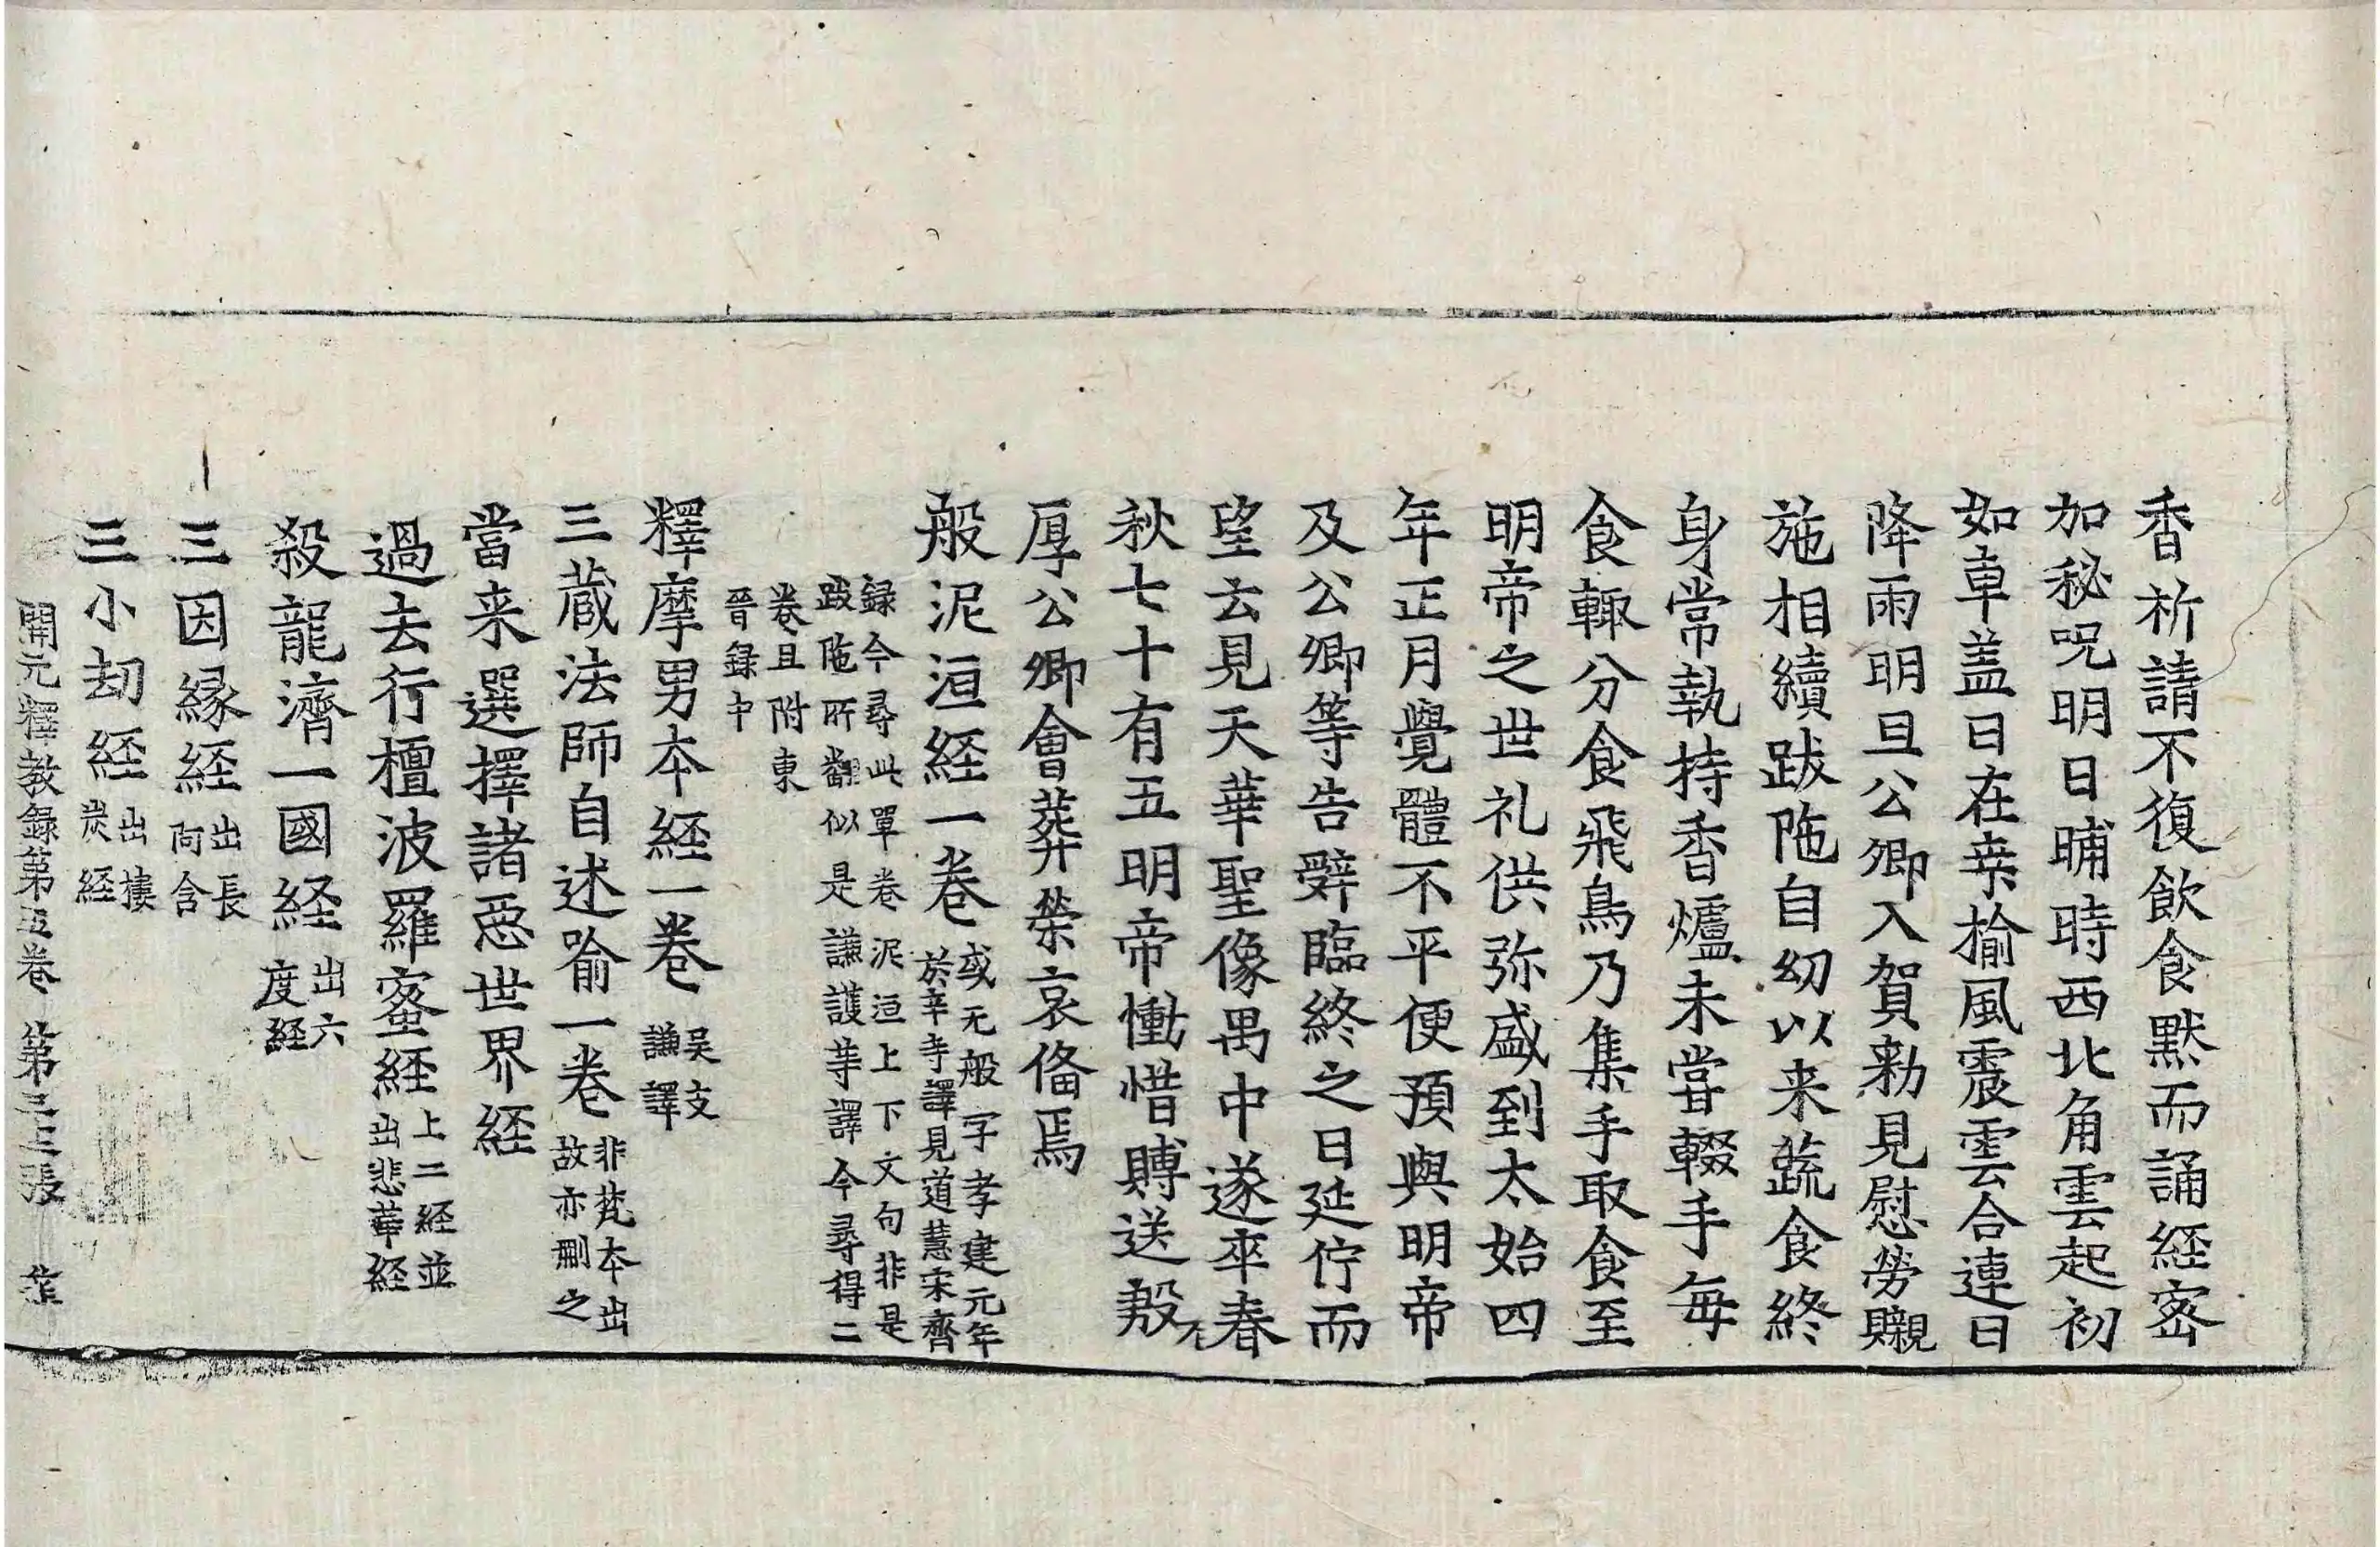 香祈請不復飲食默而誦経密
加秘呪明日晡時西北角雲起初
如車盖日在桒揄風震雲合連日
降雨明旦公卿入賀勑見慰勞賵
施相續跋陁自幼以来蔬食終
身常執持香爐未甞輟手每
食輙分食飛鳥乃集手取食至
明帝之世礼供弥盛到太始四
年正月覺體不平便預與明帝
及公卿等告辭臨終之日延佇而
望云見天華聖像禺中遂卒春
秋七十有五明帝慟惜賻送殺
厚公卿會葬榮哀俻焉
般泥洹経一卷
或无般字孝建元年
於辛寺譯見道慧宋齊
録今尋此單卷泥洹上下文句非是
跋陁所飜似是謙護等譯今尋得二
卷且附東
晉録中
釋摩男本経一卷
吴支
謙譯
三蔵法師自述喻一卷
非梵本出
故亦刪之
當来選擇諸惡世界経
過去行檀波羅蜜経
上二経並
出悲華経
殺龍濟一國経
出六
度経
三因縁経
出長
阿含
三小劫経
出樓
炭経
開元釋教録第五卷 第三三張